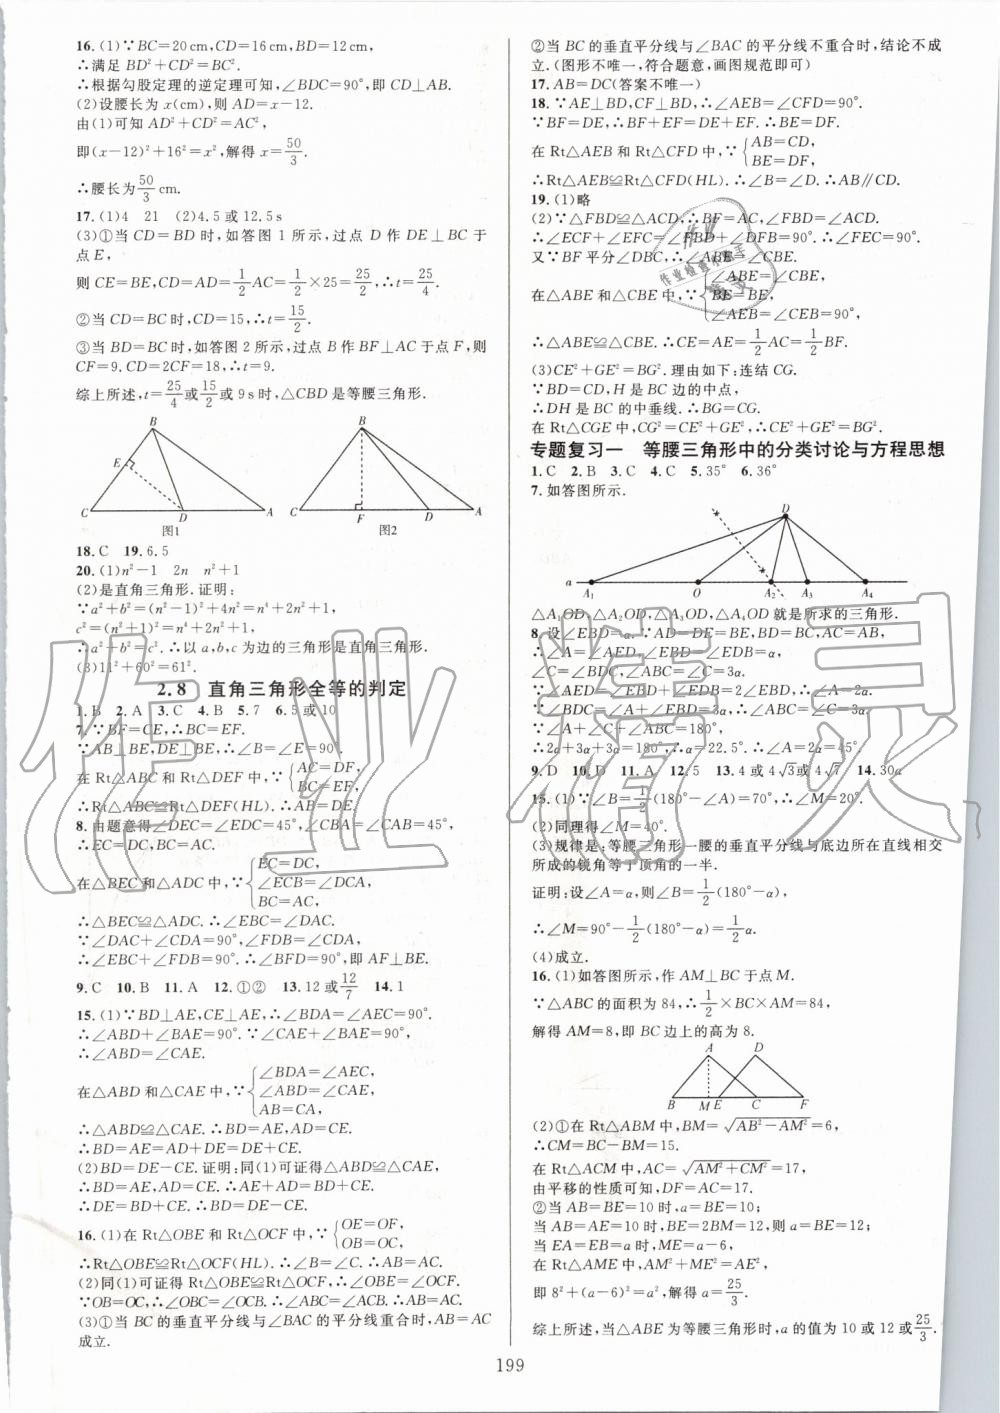 16.(1)∵BC=20cm,CD=16cm,BD=12cm,
∴满足BD²+CD²=BC².
∴根据勾股定理的逆定理可知,∠BDC=90°,即CD⊥AB.
(2)设腰长为x(cm),则AD=x-12.
由(1)可知AD²+CD²=AC²,
即(x-12)²+16²=x²,解得x=50/3.
∴腰长为50/3cm.
17.(1)4 21 (2)4.5或12.5s
(3)①当CD=BD时,如答图1所示,过点D作DE⊥BC于
点E,
则CE=BE,CD=AD=1/2AC=1/2×25=25/2,∴t=25/4.
②当CD=BC时,CD=15,∴t=15/2.
③当BD=BC时,如答图2所示,过点B作BF⊥AC于点F,则
CF=9.CD=2CF=18,∴t=9.
综上所述,t=25/4或15/2或9s时,△CBD是等腰三角形.
B
E
C D A
图1
B
C F D A
图2
18.C 19.6.5
20.(1)n²-1 2n n²+1
(2)是直角三角形.证明:
∵a²+b²=(n²-1)²+4n²=n⁴+2n²+1,
c²=(n²+1)²=n⁴+2n²+1,
∴a²+b²=c².∴以a,b,c为边的三角形是直角三角形.
(3)11²+60²=61².
2.8 直角三角形全等的判定
1.B 2.A 3.C 4.B 5.7 6.5或10
7.∵BF=CE,∴BC=EF.
∵AB⊥BE,DE⊥BE,∴∠B=∠E=90°.
在Rt△ABC和Rt△DEF中,∵{AC=DF,
BC=EF,
∴Rt△ABC≌Rt△DEF(HL).∴AB=DE.
8.由题意得∠DEC=∠EDC=45°,∠CBA=∠CAB=45°,
∴EC=DC,BC=AC.
在△BEC和△ADC中,∵{EC=DC,
∠ECB=∠DCA,
BC=AC,
∴△BEC≌△ADC.∴∠EBC=∠DAC.
∵∠DAC+∠CDA=90°,∠FDB=∠CDA,
∴∠EBC+∠FDB=90°.∴∠BFD=90°,即AF⊥BE.
9.C 10.B 11.A 12.①② 13.12或12/7 14.1
15.(1)∵BD⊥AE,CE⊥AE,∴∠BDA=∠AEC=90°.
∴∠ABD+∠BAE=90°.∵∠CAE+∠BAE=90°,
∴∠ABD=∠CAE.
在△ABD和△CAE中,∵{∠BDA=∠AEC,
∠ABD=∠CAE,
AB=CA,
∴△ABD≌△CAE.∴BD=AE,AD=CE.
∴BD=AE=AD+DE=CE+DE.
(2)BD=DE-CE.证明:同(1)可证得△ABD≌△CAE,
∴BD=AE,AD=CE.∴AE+AD=BD+CE.
∴DE=BD+CE.∴BD=DE-CE.
16.(1)在Rt△OBE和Rt△OCF中,∵{OE=OF,
OB=OC,
∴Rt△OBE≌Rt△OCF(HL).∴∠B=∠C.∴AB=AC.
(2)同(1)可证得Rt△OBE≌Rt△OCF,∴∠OBE=∠OCF.
∵OB=OC,∴∠OBC=∠OCB.∴∠ABC=∠ACB.∴AB=AC.
(3)①当BC的垂直平分线与∠BAC的平分线重合时,AB=AC
成立.
②当BC的垂直平分线与∠BAC的平分线不重合时,结论不成
立.(图形不唯一,符合题意,画图规范即可)
17.AB=DC(答案不唯一)
18.∵AE⊥BD,CF⊥BD,∴∠AEB=∠CFD=90°.
∵BF=DE,∴BF+EF=DE+EF.∴BE=DF.
在Rt△AEB和Rt△CFD中,∵{AB=CD,
BE=DF,
∴Rt△AEB≌Rt△CFD(HL).∴∠B=∠D.∴AB∥CD.
19.(1)略
(2)∵△FBD≌△ACD,∴BF=AC,∠FBD=∠ACD.
∴∠ECF+∠EFC=∠FBD+∠DFB=90°.∴∠FEC=90°.
又∵BF平分∠DBC,∴∠ABE=∠CBE.
在△ABE和△CBE中,∵{∠ABE=∠CBE,
BE=BE,
∠AEB=∠CEB=90°,
∴△ABE≌△CBE.∴CE=AE=1/2AC=1/2BF.
(3)CE²+GE²=BG².理由如下:连结CG.
∵BD=CD,H是BC边的中点,
∴DH是BC的中垂线.∴BG=CG.
在Rt△CGE中,CG²=CE²+GE²,∴CE²+GE²=BG².
专题复习一 等腰三角形中的分类讨论与方程思想
1.C 2.B 3.C 4.C 5.35° 6.36°
7.如答图所示.
D
a A₁ O A₂ A₃ A₄
△A₁OD,△A₂OD,△A₃OD,△A₄OD就是所求的三角形.
8.设∠EBD=α.∵AD=DE=BE,BD=BC,AC=AB,
∴∠A=∠AED,∠EBD=∠EDB=α,
∠C=∠BDC,∠ABC=∠C.
∵∠AED=∠EBD+∠EDB=2α,∴∠A=2α.
∵∠BDC=∠A+∠EBD=3α,∴∠C=∠ABC=3α.
∵∠A+∠C+∠ABC=180°,
∴2α+3α+3α=180°,∴α=22.5°.∴∠A=2α=45°.
9.D 10.D 11.A 12.5 13.4或4√3或4√7 14.30a
15.(1)∵∠B=1/2(180°-∠A)=70°,∴∠M=20°.
(2)同理得∠M=40°.
(3)规律是:等腰三角形一腰的垂直平分线与底边所在直线相交
所成的锐角等于顶角的一半.
证明:设∠A=α,则∠B=1/2(180°-α),
∴∠M=90°-1/2(180°-α)=1/2α.
(4)成立.
16.(1)如答图所示,作AM⊥BC于点M.
∵△ABC的面积为84,∴1/2×BC×AM=84,
解得AM=8,即BC边上的高为8.
A D
B M E C F
(2)①在Rt△ABM中,BM=√(AB²-AM²)=6,
∴CM=BC-BM=15.
在Rt△ACM中,AC=√(AM²+CM²)=17,
由平移的性质可知,DF=AC=17.
②当AB=BE=10时,a=BE=10;
当AB=AE=10时,BE=2BM=12,则a=BE=12;
当EA=EB=a时,ME=a-6,
在Rt△AME中,AM²+ME²=AE²,
即8²+(a-6)²=a²,解得a=25/3.
综上所述,当△ABE为等腰三角形时,a的值为10或12或25/3.
199
作业精灵